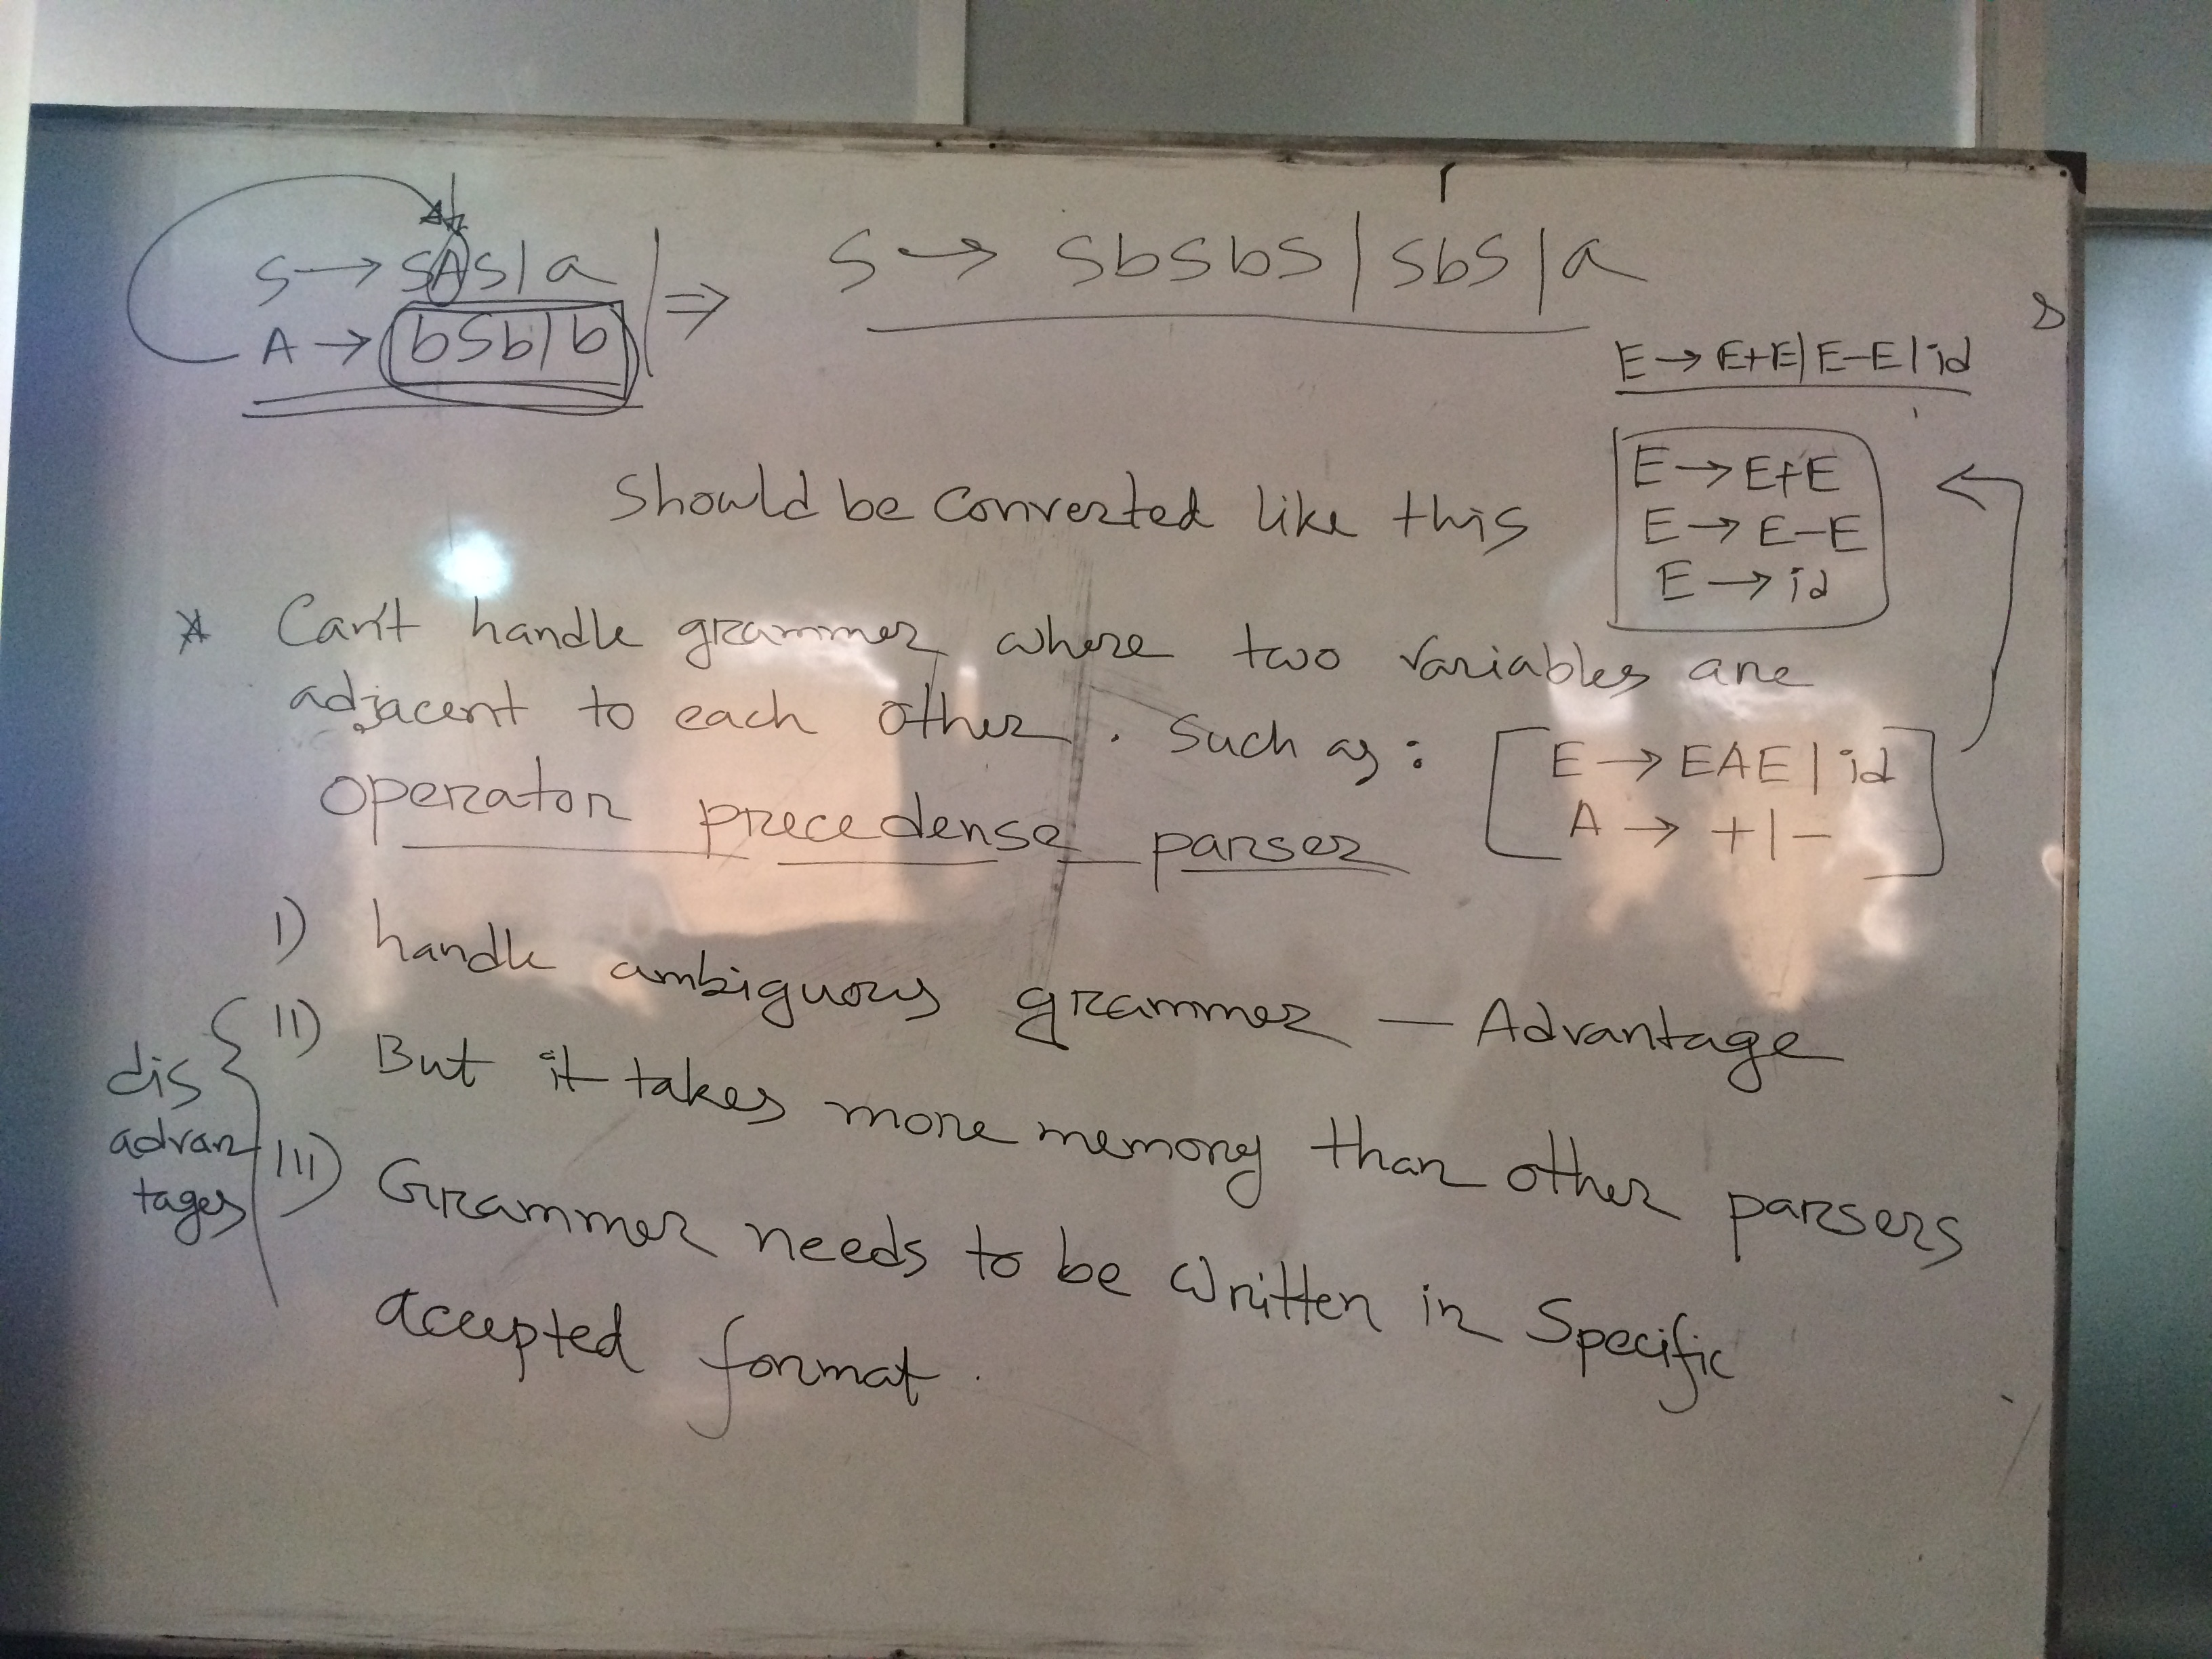 S → SAS | a
A → bSb | b
⇒ S → SbSbS | SbS | a
E → E+E | E-E | id
E → E+E
E → E-E
E → id
Should be Converted like this
* Can't handle grammer where two variables are
adjacent to each other. Such as:
E → EAE | id
A → + | -
operator precedense parser
I) handle ambiguous grammer — Advantage
II) But it takes more memory than other parsers
III) Grammer needs to be written in Specific
accepted format.
dis
advan
tages